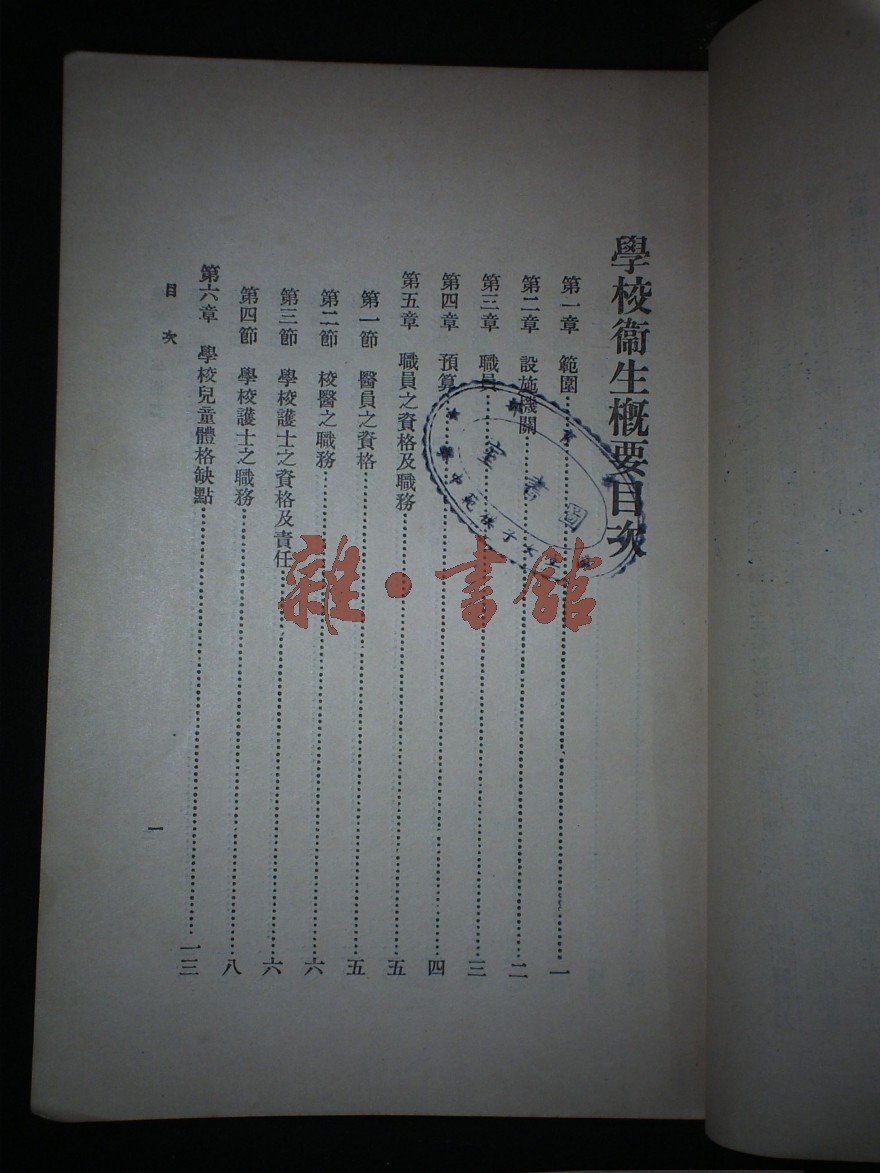 學校衞生概要目次
第一章　範圍……一
第二章　設施機關……二
第三章　職員……三
第四章　預算……四
第五章　職員之資格及職務……五
第一節　醫員之資格……五
第二節　校醫之職務……六
第三節　學校護士之資格及責任……六
第四節　學校護士之職務……八
第六章　學校兒童體格缺點……一三
目次
一
圖書室
雜·書館